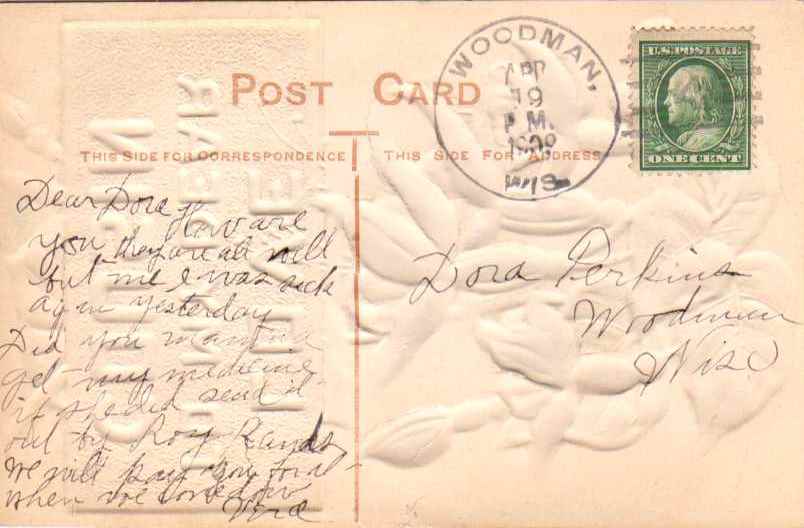 POST CARD
THIS SIDE FOR CORRESPONDENCE
THIS SIDE FOR ADDRESS
WOODMAN,
APR
19
P.M.
1909
WIS.
U.S. POSTAGE
ONE CENT
Dear Dora How are
you they are all well
but me I was sick
again yesterday
Did you mama
get my medicine
if she did send it
out by Roy Rands
we will pay you for it
when we come down
Vera
Dora Perkins
Woodman
Wisc